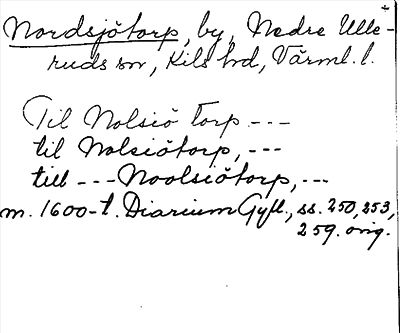 Nordsjötorp, by, Nedre Ulle-
ruds sn, Kils hd, Värml. l.
Til Nolsiö Torp ---
til Nolsiötorp, ---
till --- Noolsiötorp, ---
m. 1600-t. Diarium Gyll., ss. 250, 253,
259. orig.